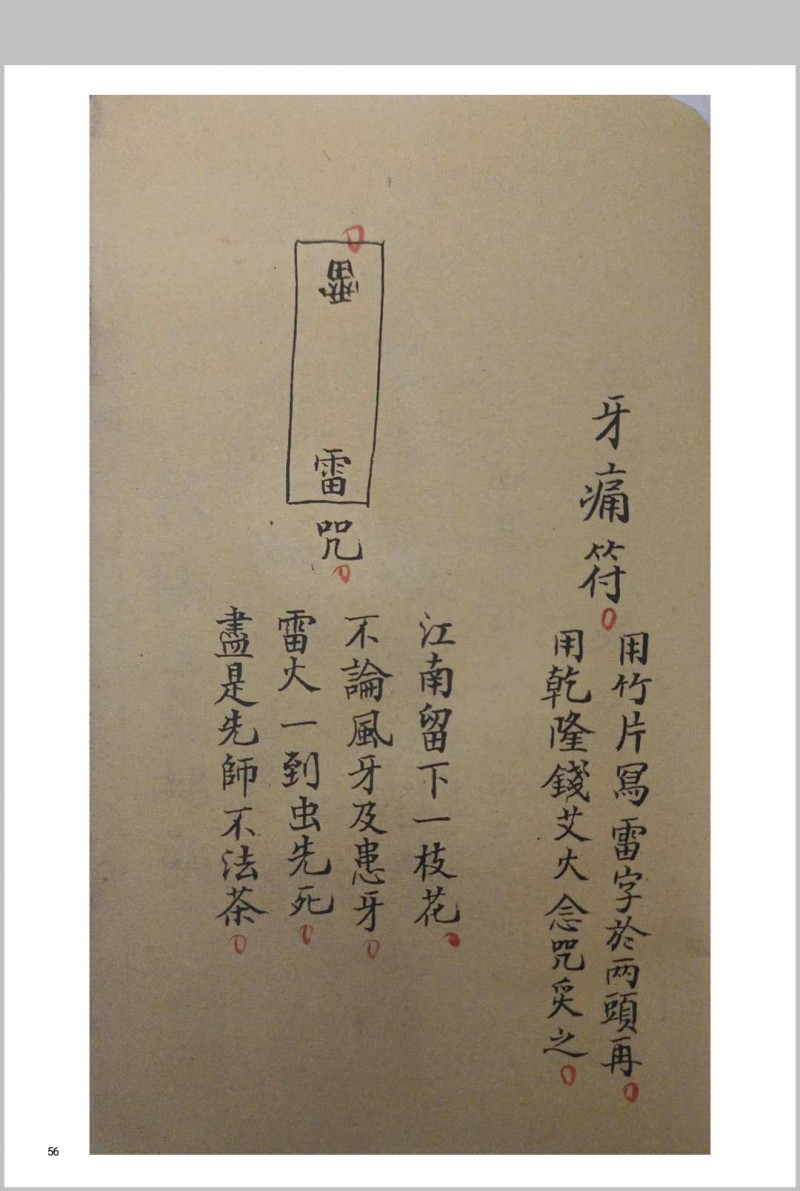 牙痛符
用竹片冩雷字於两頭再
用乾隆錢艾火念咒炙之
雷
雷
咒
江南留下一枝花
不論風牙及患牙
雷火一到虫先死
盡是先師不法茶
56